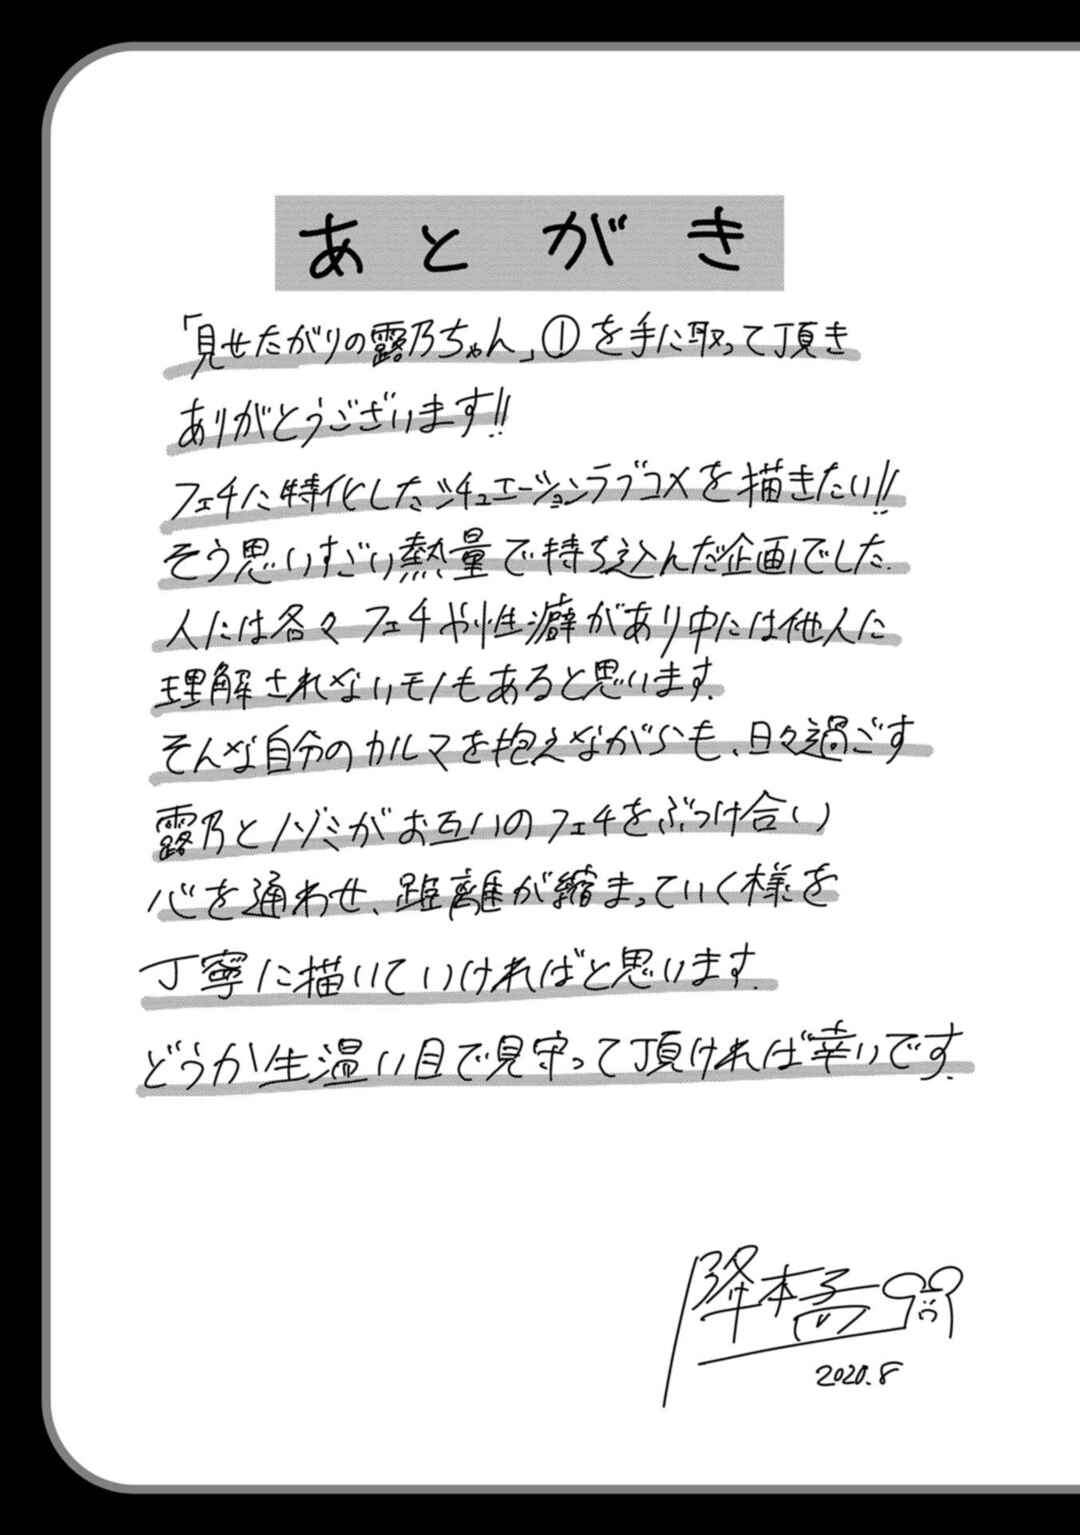 あとがき
「見せたがりの露乃ちゃん」①を手に取って頂き
ありがとうございます!!
フェチに特化したシチュエーションラブコメを描きたい!!
そう思いすごい熱量で持ち込んだ企画でした.
人には各々フェチや性癖があり中には他人に
理解されないモノもあると思います.
そんな自分のカルマを抱えながらも、日々過ごす
露乃とノゾミがお互いのフェチをぶつけ合い
心を通わせ、距離が縮まっていく様を
丁寧に描いていければと思います.
どうか生温い目で見守って頂ければ幸いです.
降本孟
2020.8